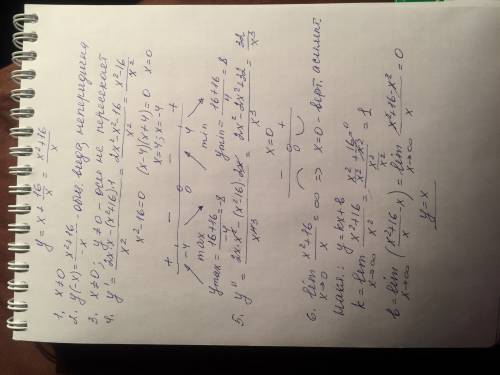 y = x + 16/x = (x²+16)/x
1. x≠0
2. y(-x) = (x²+16)/-x - общ. вида, непериодична
3. x≠0; y≠0 - осей не пересекает
4. y' = (2x·x-(x²+16)·1)/x² = (2x²-x²-16)/x² = (x²-16)/x²
x²-16=0 (x-4)(x+4)=0 x=0
x=4; x=-4
+ - - +
-4 0 4
max min
ymax = (16+16)/-4 = -8 ymin = (16+16)/4 = 8
5. y'' = (2x·x²-(x²-16)·2x)/x⁴ = (2x²-2x²+32)/x³ = 32/x³
x=0
- +
0
6. lim x→0 (x²+16)/x = ∞ => x=0 - верт. асимпт.
Накл.: y=kx+b
k = lim x→∞ (x²+16)/x² = (x²/x² + 16/x²)/(x²/x²) = 1
b = lim x→∞ ((x²+16)/x - x) = lim x→∞ (x²+16-x²)/x = 0
y=x